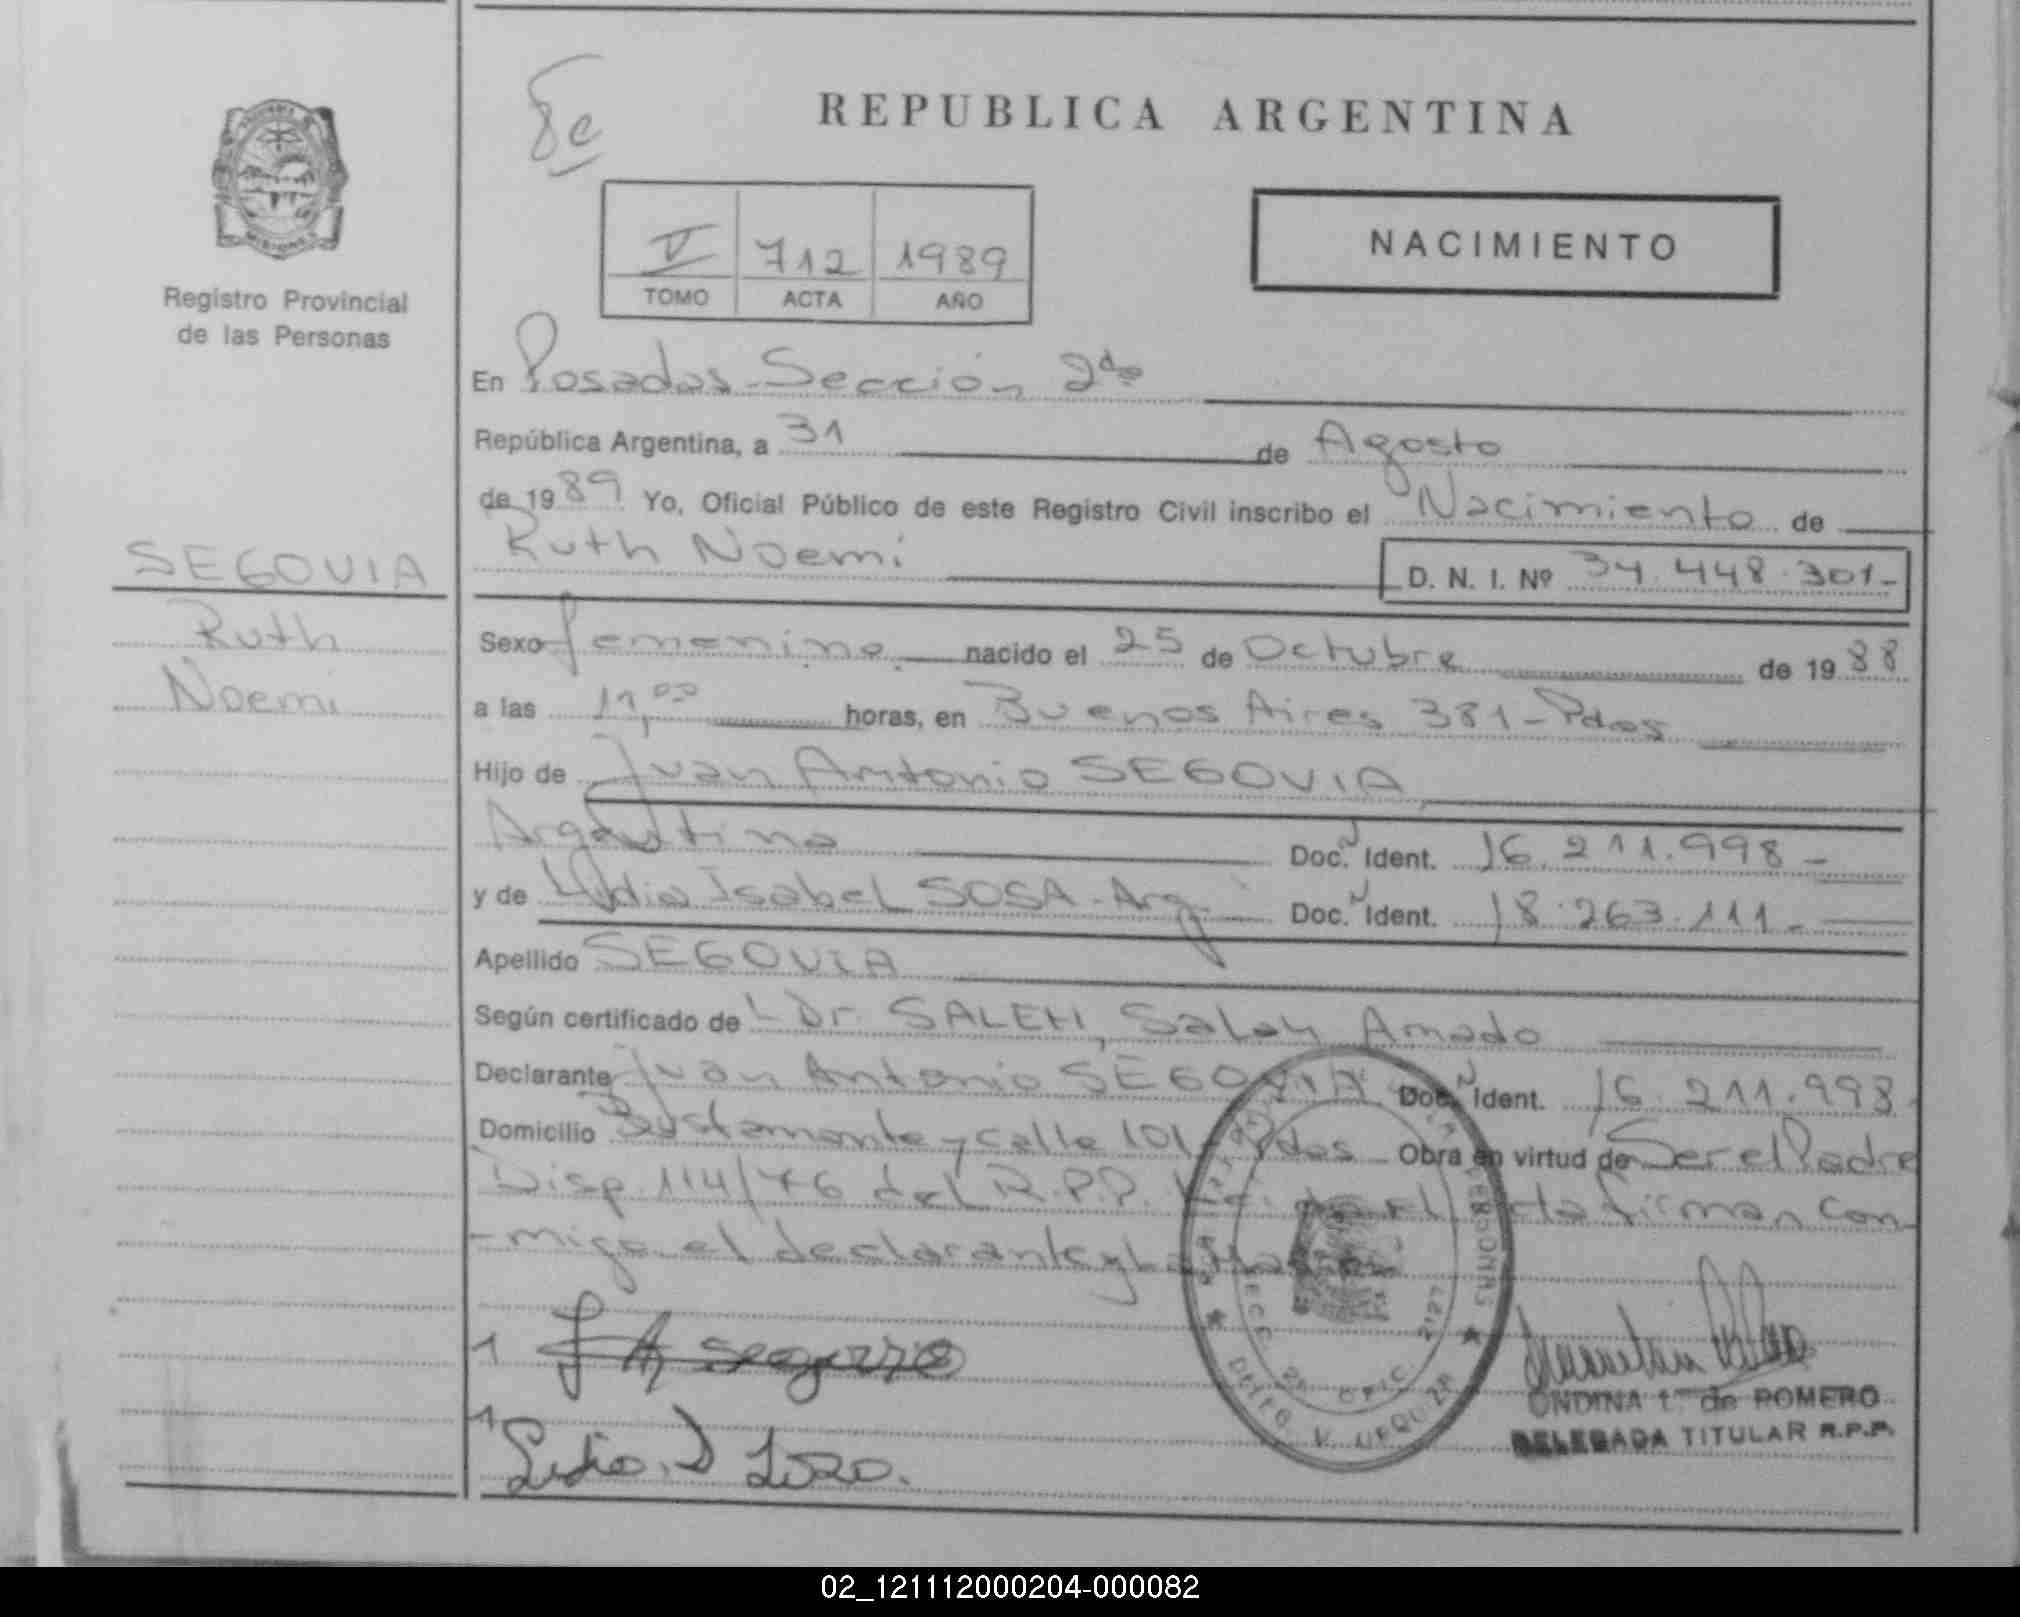 REPUBLICA ARGENTINA
MISIONES
Registro Provincial
de las Personas
V 712 1989
TOMO ACTA AÑO
NACIMIENTO
En Posadas-Sección 2da
República Argentina, a 31 de Agosto
de 1989 Yo, Oficial Público de este Registro Civil inscribo el Nacimiento de
Ruth Noemi D. N. I. Nº 34.448.301-
SEGOVIA
Ruth
Noemi
Sexo femenino nacido el 25 de Octubre de 1988
a las horas, en Buenos Aires 381-Pdas
Hijo de Juan Antonio SEGOVIA
Argentina Doc. Ident. 16.211.998-
y de Lidia Isabel SOSA-Arg. Doc. Ident. 18.263.111-
Apellido SEGOVIA
Según certificado de Dr. SALEH, Saleh Amado
Declarante Juan Antonio SEGOVIA Doc. Ident. 16.211.998
Domicilio Bustamante y calle 101-Pdas Obra en virtud de Ser el Padre
Disp. 114/76 del R.P.P. el acta firman con-
-migo el declarante y la
ONDINA de ROMERO
DELEGADA TITULAR R.P.P.
02_121112000204-000082